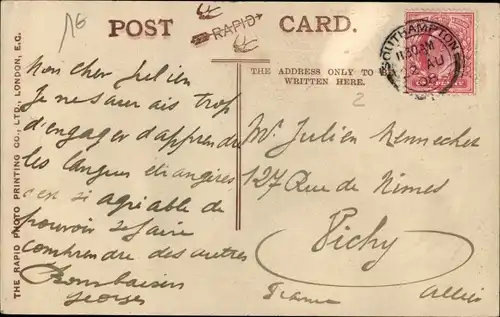 POST CARD.
RAPID
15
THE ADDRESS ONLY TO BE
WRITTEN HERE.
SOUTHAMPTON
11.30 AM
AU
2
Mon cher Julien
Je ne saurais trop
d'engager d'apprendre
les langues étrangères
c'est si agréable de
pouvoir se faire
comprendre des autres
Georges
Mr Julien Mennechet
127 Rue de Nimes
Vichy
France Allier
THE RAPID PHOTO PRINTING CO., LTD., LONDON, E.C.